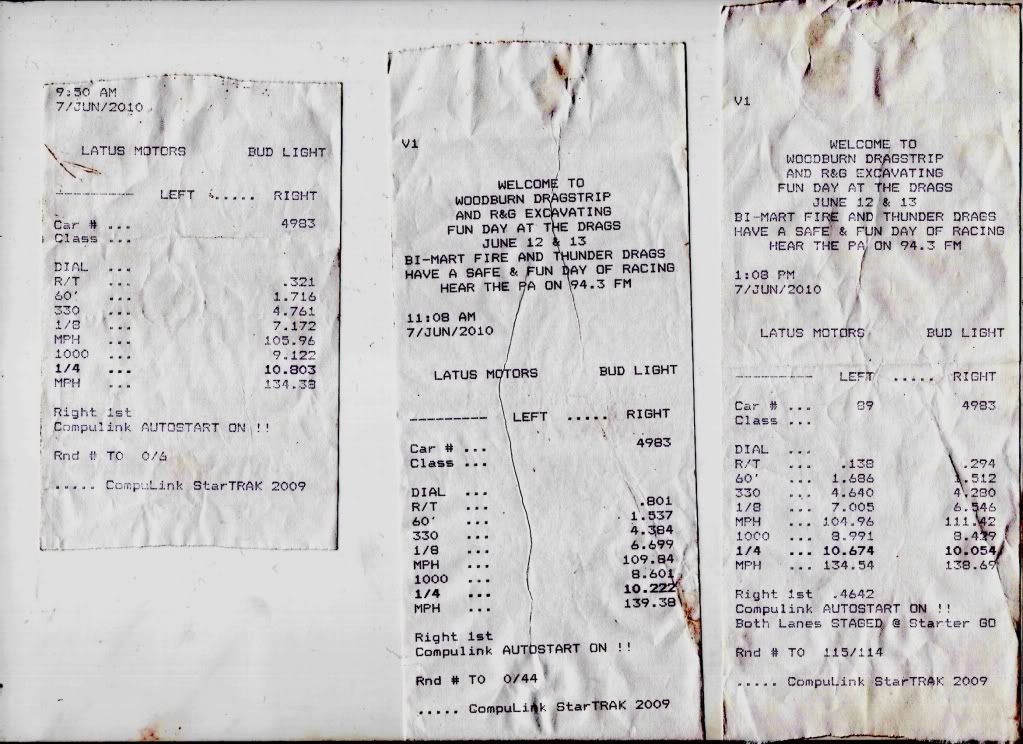 9:50 AM
7/JUN/2010
LATUS MOTORS BUD LIGHT
----------- LEFT ..... RIGHT
Car # ... 4983
Class ...
DIAL ...
R/T ... .321
60' ... 1.716
330 ... 4.761
1/8 ... 7.172
MPH ... 105.96
1000 ... 9.122
1/4 ... 10.803
MPH ... 134.38
Right 1st
Compulink AUTOSTART ON !!
Rnd # TO 0/6
..... CompuLink StarTRAK 2009
V1
WELCOME TO
WOODBURN DRAGSTRIP
AND R&G EXCAVATING
FUN DAY AT THE DRAGS
JUNE 12 & 13
BI-MART FIRE AND THUNDER DRAGS
HAVE A SAFE & FUN DAY OF RACING
HEAR THE PA ON 94.3 FM
11:08 AM
7/JUN/2010
LATUS MOTORS BUD LIGHT
----------- LEFT ..... RIGHT
Car # ... 4983
Class ...
DIAL ...
R/T ... .801
60' ... 1.537
330 ... 4.384
1/8 ... 6.699
MPH ... 109.84
1000 ... 8.601
1/4 ... 10.222
MPH ... 139.38
Right 1st
Compulink AUTOSTART ON !!
Rnd # TO 0/44
..... CompuLink StarTRAK 2009
V1
WELCOME TO
WOODBURN DRAGSTRIP
AND R&G EXCAVATING
FUN DAY AT THE DRAGS
JUNE 12 & 13
BI-MART FIRE AND THUNDER DRAGS
HAVE A SAFE & FUN DAY OF RACING
HEAR THE PA ON 94.3 FM
1:08 PM
7/JUN/2010
LATUS MOTORS BUD LIGHT
----------- LEFT ..... RIGHT
Car # ... 89 4983
Class ...
DIAL ...
R/T ... .138 .294
60' ... 1.686 1.512
330 ... 4.640 4.280
1/8 ... 7.005 6.546
MPH ... 104.96 111.42
1000 ... 8.991 8.429
1/4 ... 10.674 10.054
MPH ... 134.54 138.69
Right 1st .4642
Compulink AUTOSTART ON !!
Both Lanes STAGED @ Starter GO
Rnd # TO 115/114
..... CompuLink StarTRAK 2009